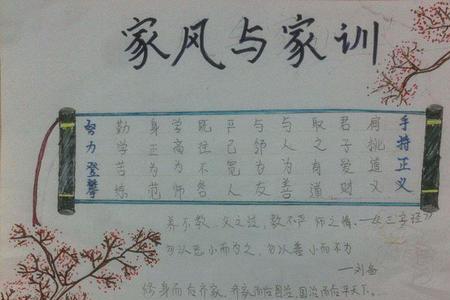 家风与家训
手持正义
肩挑道义
君子爱财
取之有道
与人为善
与邻为友
严己宽人
既往不咎
学高为师
身正为范
勤学苦练
努力登攀
养不教，父之过，教不严 师之惰。—《三字经》
勿以恶小而为之，勿以善小而不为
—刘备
修身而后齐家，齐家而后国治，国治而后平天下。